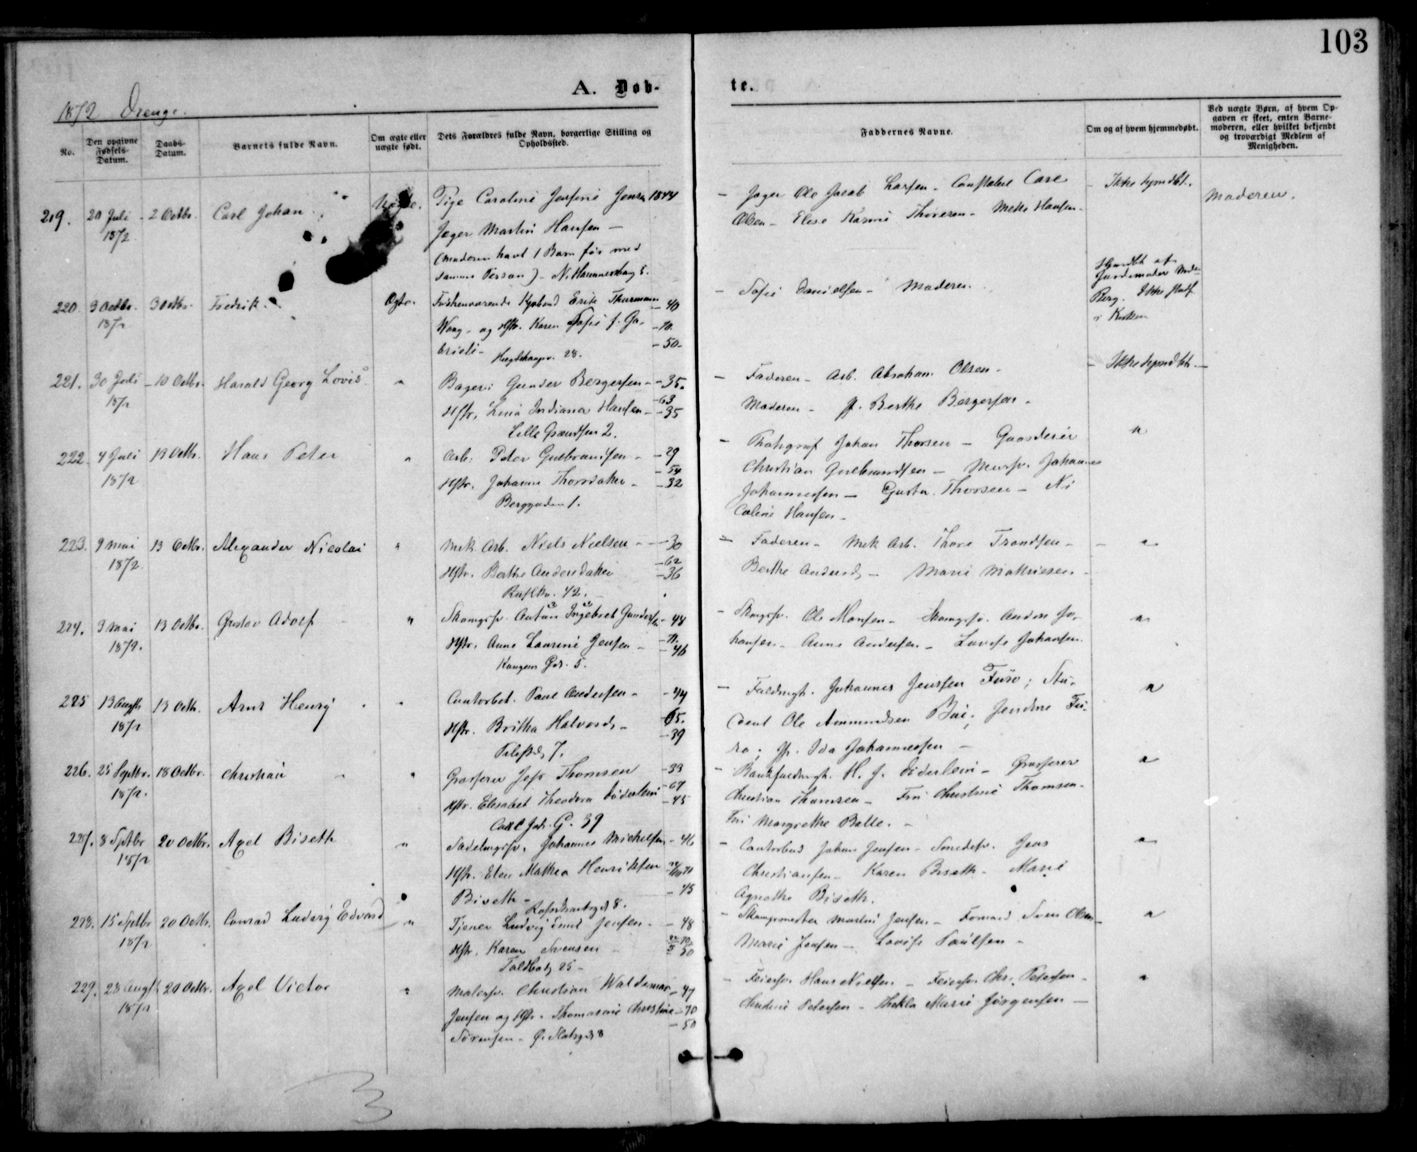 103
A. Døb-
te.
1872 Drenge.
No.
Den opgivne Fødsels-Datum.
Daabs-Datum.
Barnets fulde Navn.
Om ægte eller uægte født.
Dets Forældres fulde Navn, borgerlige Stilling og Opholdssted.
Faddernes Navne.
Om og af hvem hjemmedøbt.
Ved uægte Børn, af hvem Opgaven er skeet, enten Barnemoderen, eller hvilket bekjendt og troværdigt Medlem af Menigheden.
219. 20 Juli 1872 2 Octbr. Carl Johan
Pige Caroline Jensine Jensen 1844
Jæger Martin Hansen —
(Moderen havt 1 Barn før med
samme Person) - N. Hammersborg 5.
Jæger Ole Jacob Larsen - Constabel Carl
Olsen - Elise Karine Thoresen - Mette Hansen -
Ikke hjemdbt.
Moderen.
220. 3 Octbr. 1872 3 Octbr. Fredrik
Ægte.
Erik Thurmann - 40
og Hstr. Karen Sofie f. Ga- - 70
briels - - 50
28.
Sofie Danielsen - Moderen
Hjemdbt af
Jordemoder
Berg. Ikke
i Kirken
221. 30 Juli 1872 - 10 Octbr. Harald Georg Lovis
"
Bager Gunder Bergersen - - 35.
- 63
Hstr. Lina Indiana Hansen - - 35
Lille Grændsen 2.
- Faderen - Arb. Abraham Olsen -
Moderen - Berthe Bergersen -
- Ikke hjemdbt. -
222. 4 Juli 1872 13 Octbr. Hans Peter
"
Arb. Peter Gulbrandsen - - 29
- 54
Hstr. Johanne Thorsdatter - - 32
Berggaden 1.
- Johan Thorsen - Gaardeier
Christian Gulbrandsen - Johannes
Johannessen - Thorsen -
Hansen -
"
223. 9 Mai 1872 13 Octbr. Alexander Nicolai
"
Mek. Arb. Niels Nielsen - - 30
- 62
Hstr. Berthe Andersdatter - 36
42.
- Faderen - Mek. Arb. Thore Trondsen -
Berthe Andersd. - Marie Mathiesen -
"
224. 3 Mai 1872. 13 Octbr. Gustav Adolf
"
Anton Ingebret Gundersen - 44
- 71.
Hstr. Anne Laurine Jensen - - 46
Kongens Gd. 5.
- Ole Hansen - Anders Jo-
hansen - Anne Andersen - Lovise Johansen
"
225 13 Augst. 1872 13 Octb. Arnt Henry
"
Contorbet. Paul Andersen - - 44
65.
Hstr. Britha Halvorsd. - - 39
7.
- Fuldmgt. Johannes Jenssen Furo; Stu-
dent Ole Ammundsen Jendine Fu-
ro; Ida Johannessen -
"
226. 25 Septbr. 1872. 18 Octbr. Christian
"
Grosserer Jess Thomsen - 33
- 67
Hstr. Elisabet Theodora Döderlein - 45
Carl Joh. G. 39
- Bankfuldmgt. H. J. Döderlein - Grosserer
Christian Thomsen - Fru Christine Thomsen -
Fru Margrethe Balle. -
"
227. 8 Septbr 1872 20 Octbr. Axel Biseth
"
Sadelmgsv. Johannes Michelsen - 46
Hstr. Elen Mathea Henriksen
Biseth - - 45
8.
- Contorbud Johan Jensen - Smedsv. Jens
Christiansen - Karen Biseth - Marie
Agnethe Biseth.
"
228. 15 Septbr 1872 20 Octbr. Conrad Ludvig Edvard
"
Tjener Ludvig Jensen - - 48
Hstr. Karen Svensen - 50
25 -
- Martin Jensen - Formand Sven Olsen -
Marie Jensen - Lovise Paulsen -
"
229. 23 Augst 1872 20 Octbr. Axel Victor
"
Malersv. Christian Waldemar - 47
Jensen og Hstr. Thomasine Christine - 70
- 50
Sørensen - Slotsgd. 8
- Feiersv. Hans Nielsen - Feiersv. Chr. Petersen -
Petersen - Thekla Marie Jørgensen -
"
3